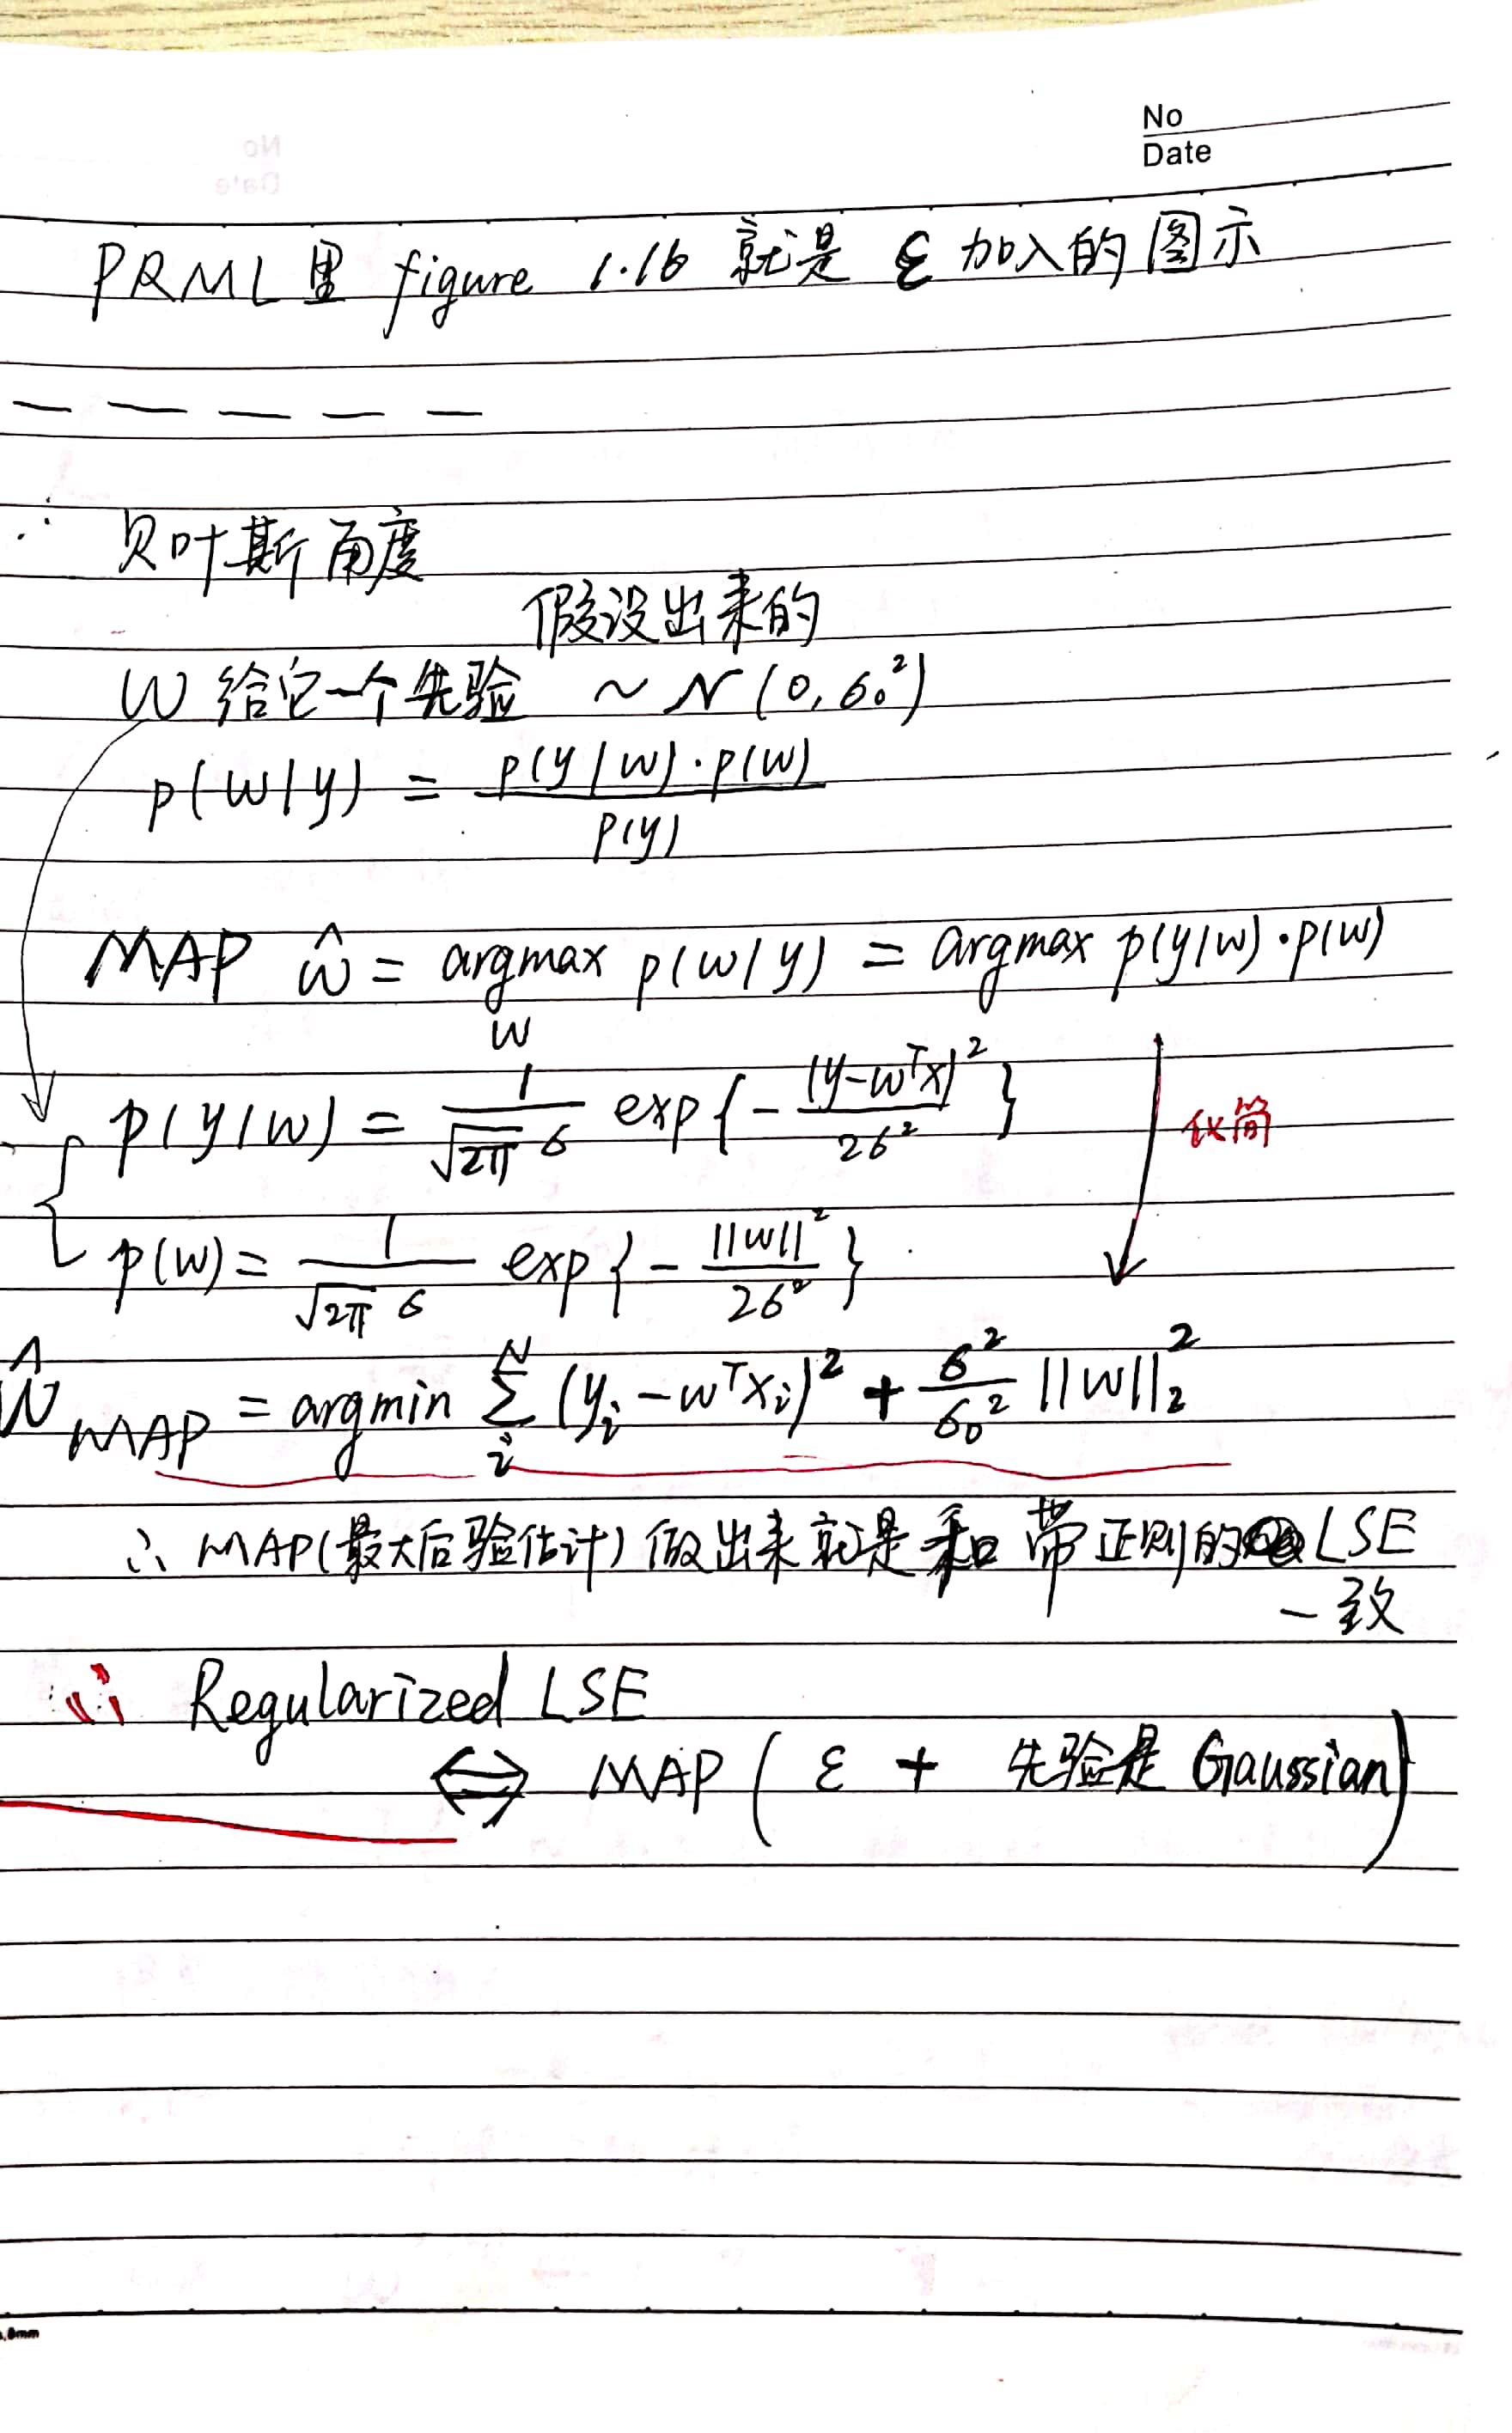 No
Date
PRML里 figure 1.16 就是 ε 加入的图示
∴ 贝叶斯角度
假设出来的
W 给它一个先验 ~ N(0, σ₀²)
p(w|y) = p(y|w)·p(w) / p(y)
MAP ŵ = argmax p(w|y) = argmax p(y|w)·p(w)
w
p(y|w) = 1/(√2π σ) exp{- (y-wᵀx)² / 2σ²}
化简
p(w) = 1/(√2π σ) exp{- ||w||² / 2σ²}
ŵ MAP = argmin Σᵢᴺ (yᵢ - wᵀxᵢ)² + σ²/σ₀² ||w||₂²
∴ MAP(最大后验估计) 做出来就是和带正则的 LSE
一致
∴ Regularized LSE
⇔ MAP ( ε + 先验是 Gaussian)
.8mm